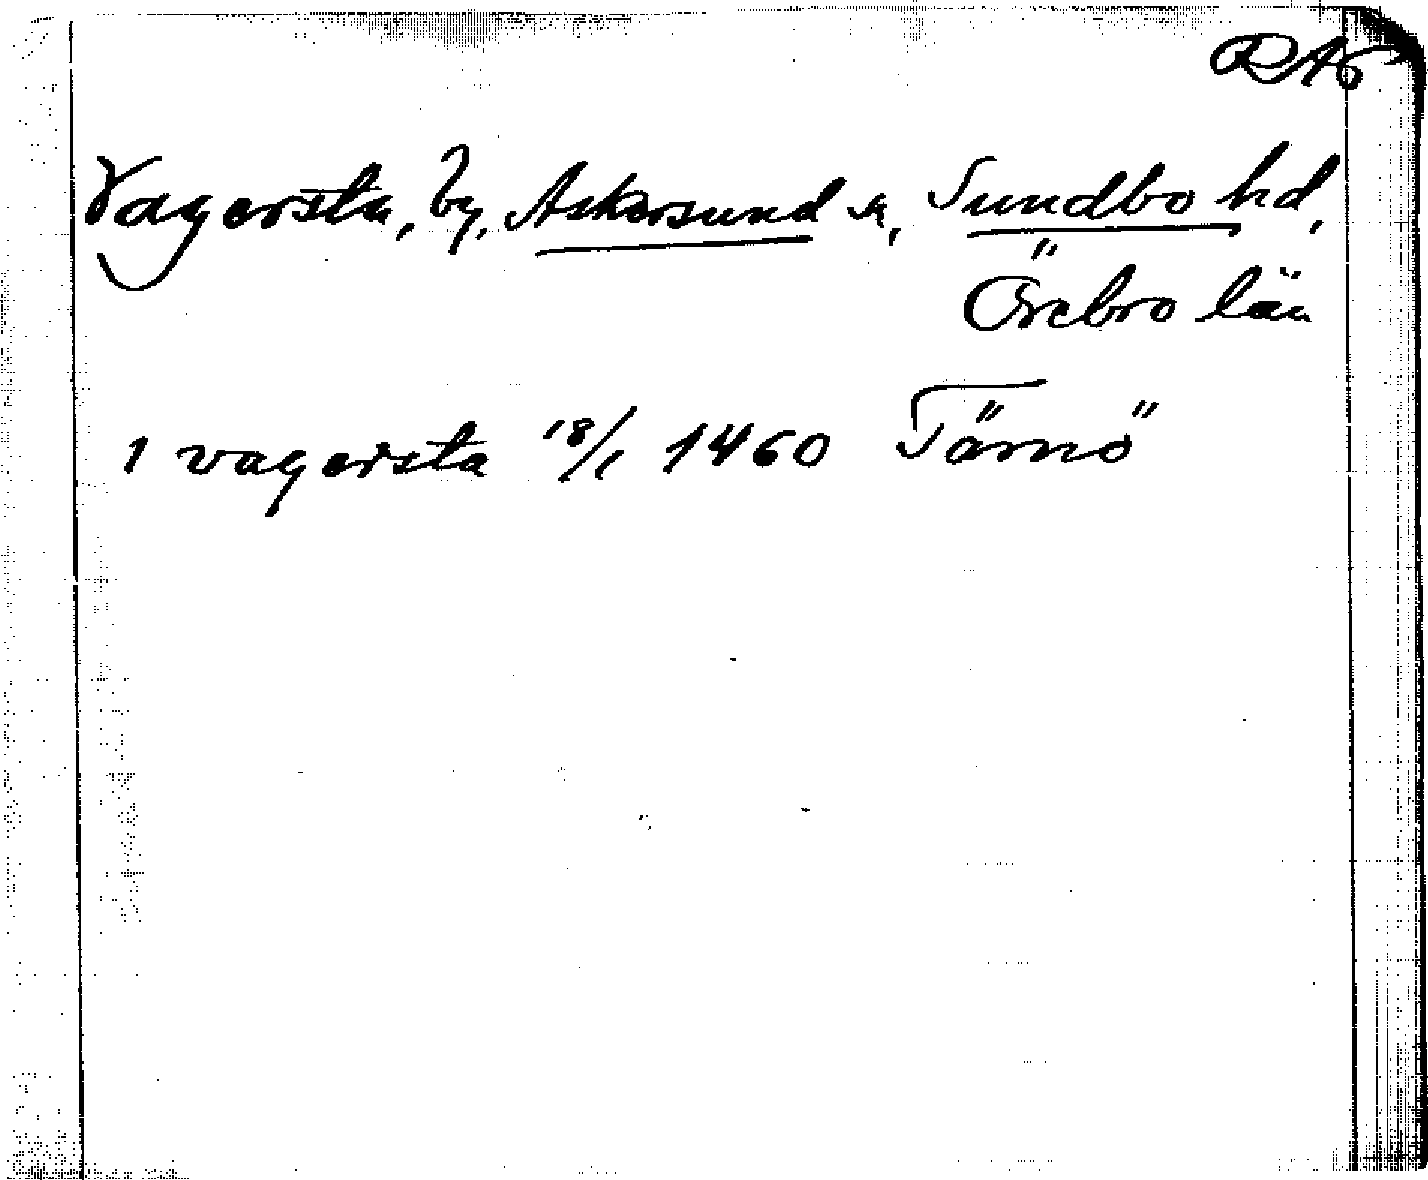 RAp
Vagersta, by, Askersund sn, Sundbo hd,
Örebro län
1 vagersta 18/1 1460 Tärnö